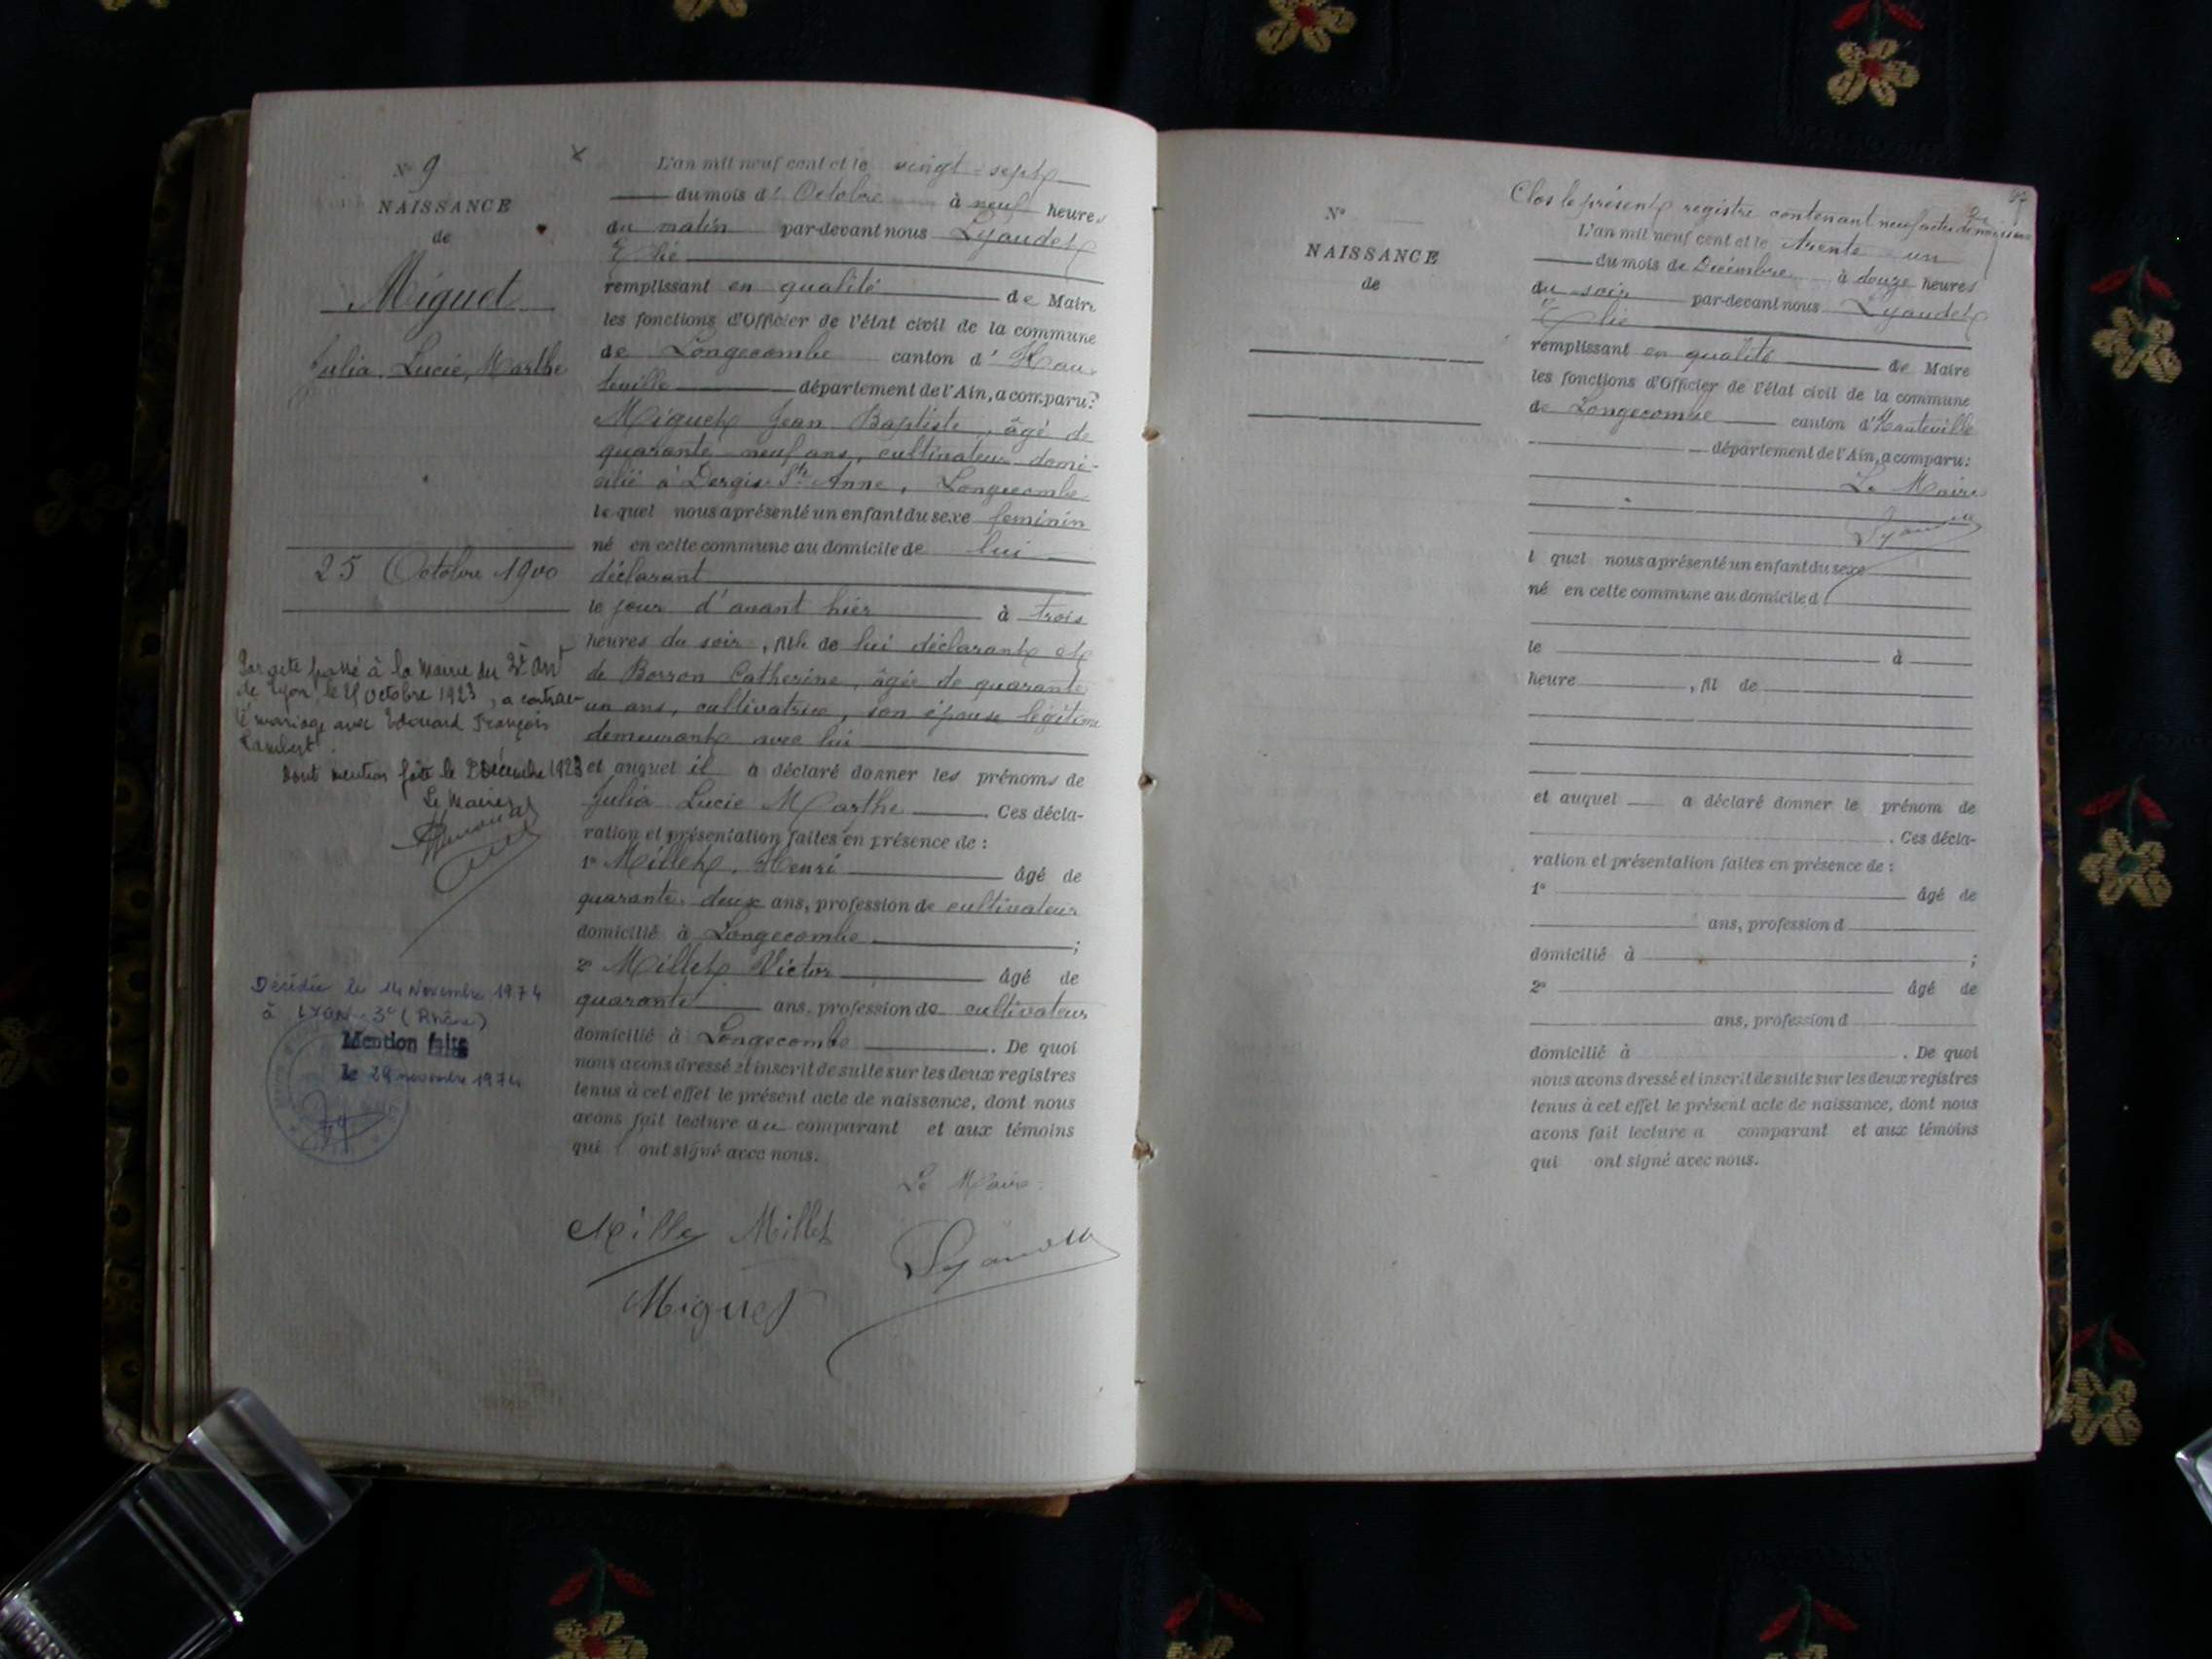 N° 9
NAISSANCE
de
Miguet
Julia, Lucie, Marthe
25 Octobre 1900
Par acte passé à la Mairie du 3e Arrt
de Lyon, le 29 Octobre 1923, a contrac-
té mariage avec Edouard François
Lambert.
Dont mention faite le 2 Décembre 1923
Le Maire
Décédée le 14 Novembre 1974
à LYON-3° (Rhône)
Mention faite
le 29 novembre 1974
L'an mil neuf cent et le vingt-sept
du mois d' Octobre à neuf heures
du matin par-devant nous Lyaudet
Elie
remplissant en qualité de Maire
les fonctions d'Officier de l'état civil de la commune
de Longecombe canton d' Hau-
teville département de l'Ain, a comparu:
Miguet Jean Baptiste, âgé de
quarante neuf ans, cultivateur domi-
cilié à Dergis Ste Anne, Longecombe
lequel nous a présenté un enfant du sexe féminin
né en cette commune au domicile de lui
déclarant
le jour d'avant hier à trois
heures du soir, fille de lui déclarant et
de Borron Catherine, âgée de quarante
un ans, cultivatrice, son épouse légitime
demeurant avec lui
et auquel il a déclaré donner les prénoms de
Julia Lucie Marthe. Ces décla-
ration et présentation faites en présence de :
1° Millet, Henri âgé de
quarante-deux ans, profession de cultivateur
domicilié à Longecombe ;
2° Millet Victor âgé de
quarante ans, profession de cultivateur
domicilié à Longecombe. De quoi
nous avons dressé et inscrit de suite sur les deux registres
tenus à cet effet le présent acte de naissance, dont nous
avons fait lecture au comparant et aux témoins
qui l ont signé avec nous.
Le Maire
Millet Millet
Lyaudet
Miguet
Clos le présent registre contenant neuf actes de naissance
N°
NAISSANCE
de
L'an mil neuf cent et le trente-un
du mois de Décembre à douze heures
du soir par-devant nous Lyaudet
Elie
remplissant en qualité de Maire
les fonctions d'Officier de l'état civil de la commune
de Longecombe canton d'Hauteville
département de l'Ain, a comparu:
Le Maire
Lyaudet
l quel nous a présenté un enfant du sexe
né en cette commune au domicile d
le à
heure , fil de
et auquel a déclaré donner le prénom de
. Ces décla-
ration et présentation faites en présence de :
1° âgé de
ans, profession d
domicilié à ;
2° âgé de
ans, profession d
domicilié à . De quoi
nous avons dressé et inscrit de suite sur les deux registres
tenus à cet effet le présent acte de naissance, dont nous
avons fait lecture a comparant et aux témoins
qui ont signé avec nous.